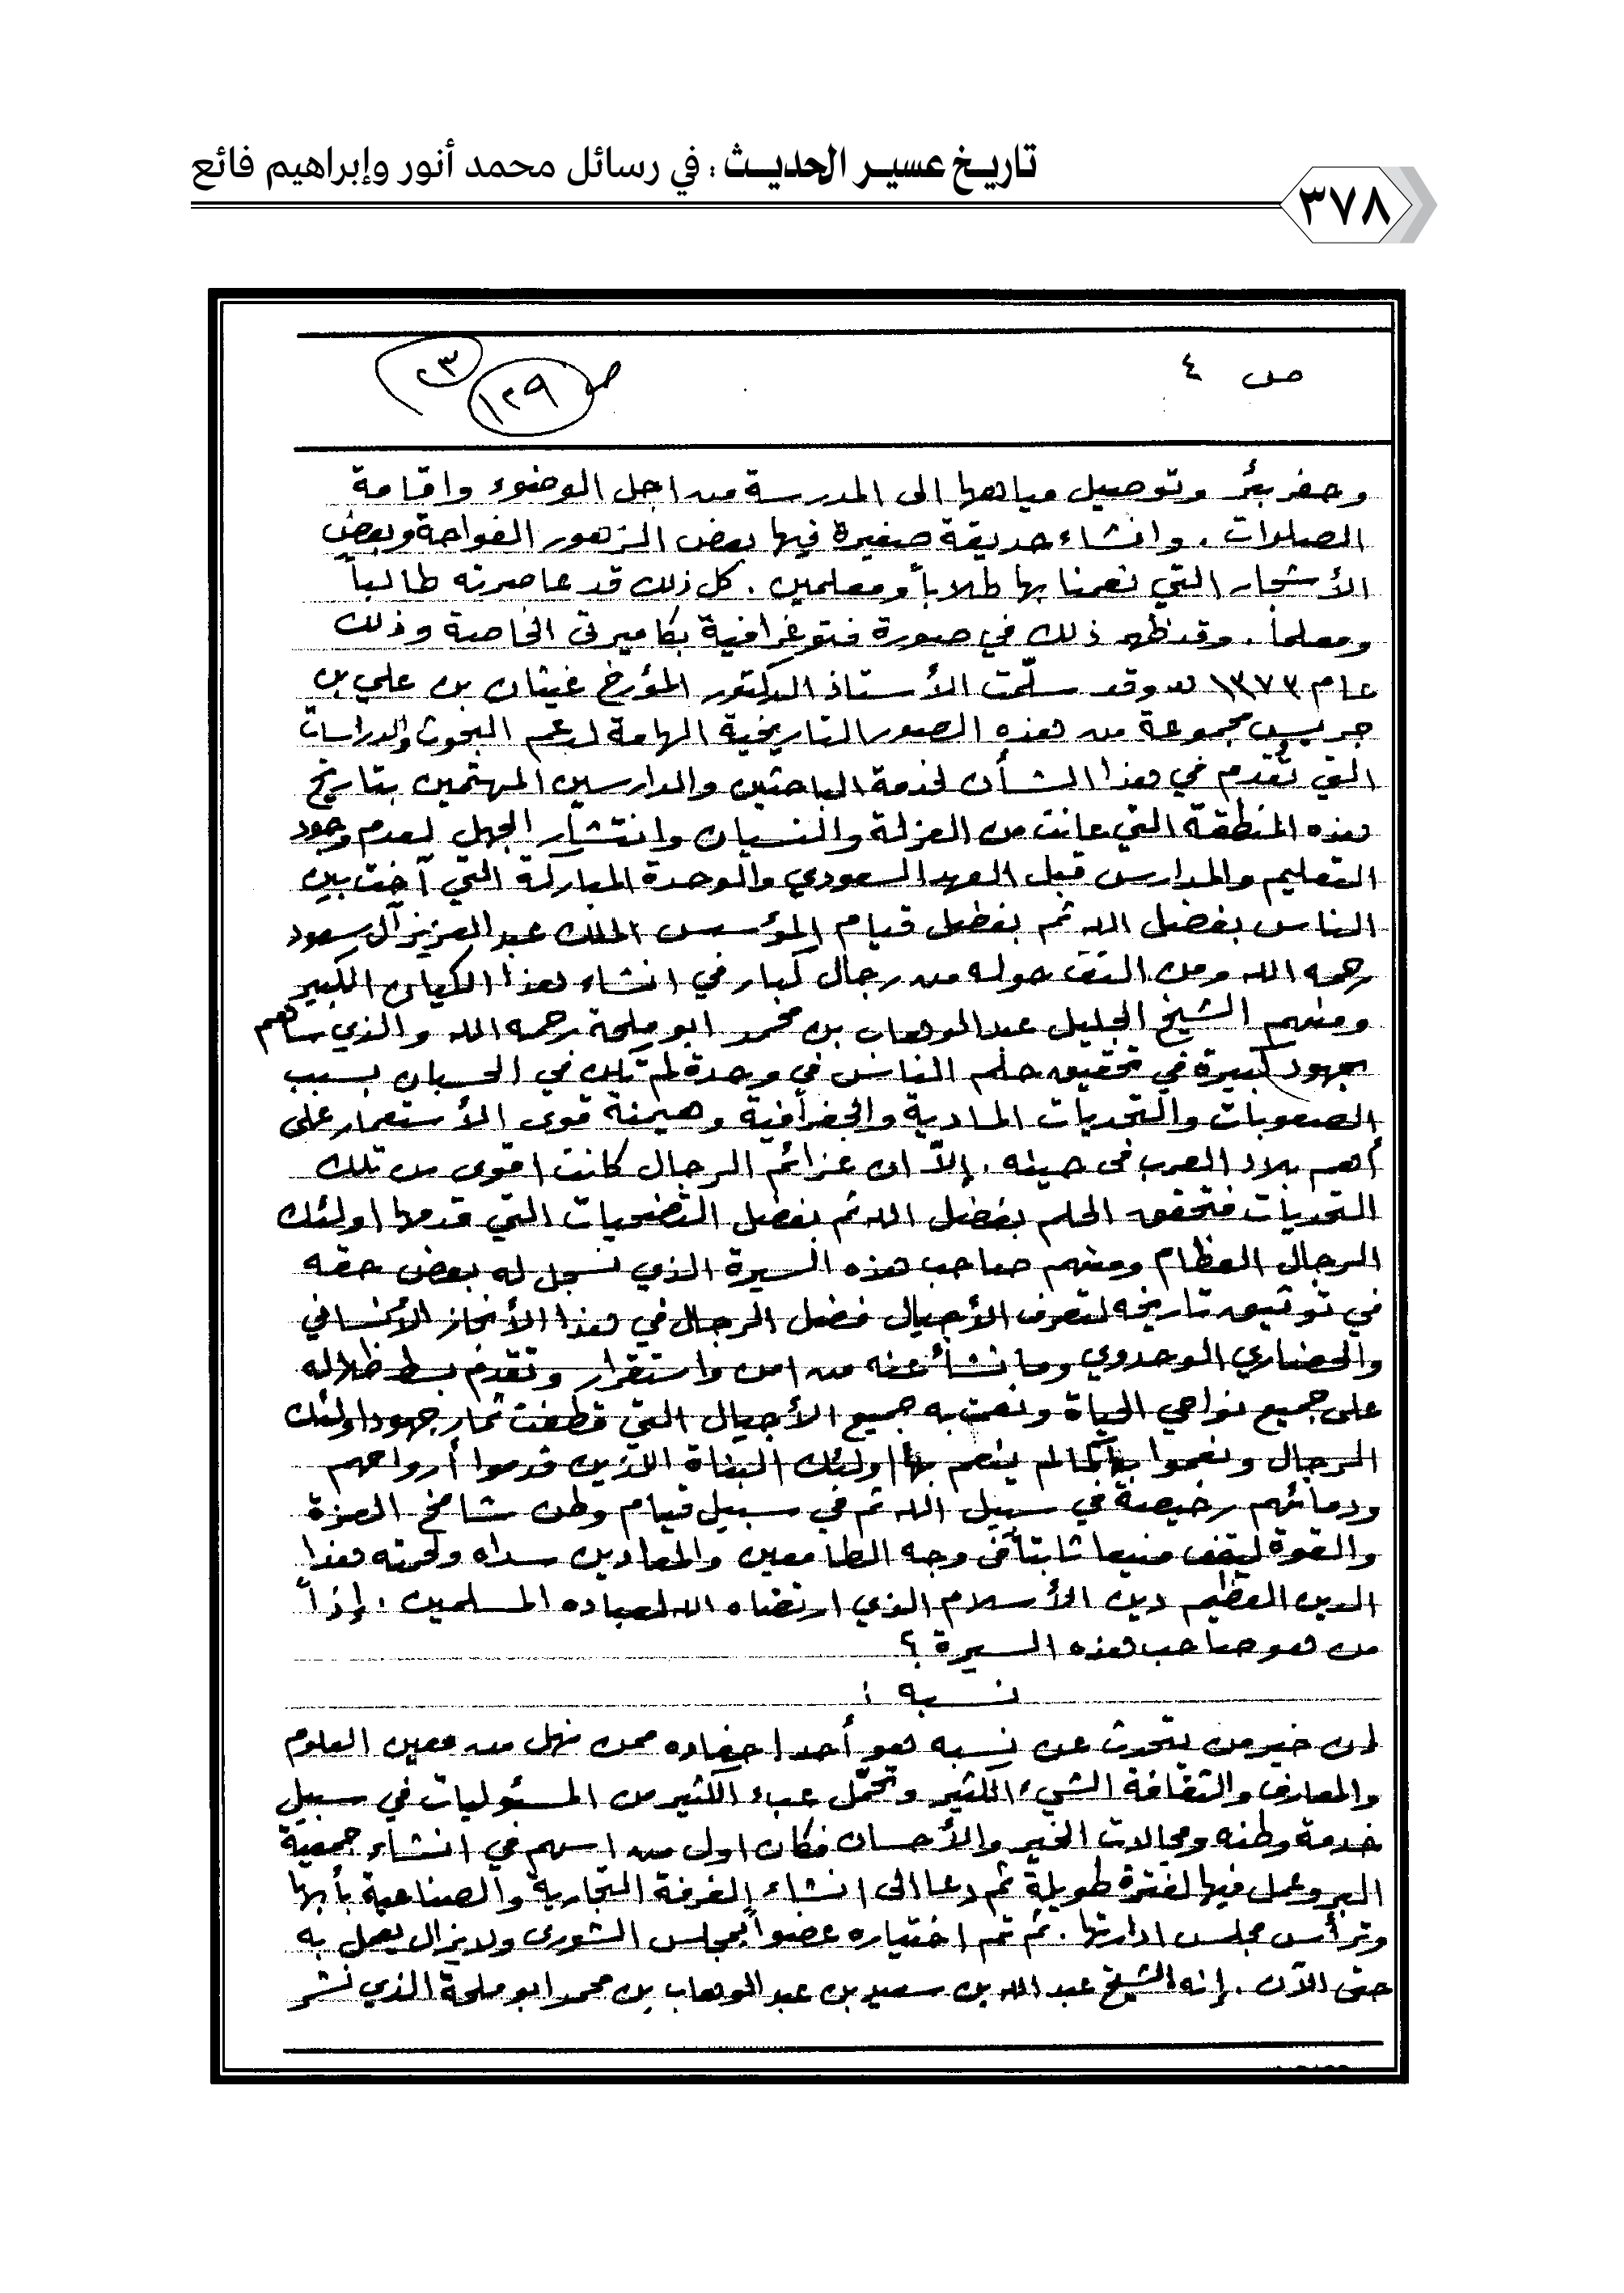 تاريخ عسير الحديث : في رسائل محمد أنور وإبراهيم فائع
٣٧٨
ص ٤
ص ١٢٩
وحفر بئر وتوصيل مياهها الى المدرسة من اجل الوضوء واقامة
الصلوات . وانشاء حديقة صغيرة فيها بعض الزهور الفواحة وبعض
الأشجار التي نعمنا بها طلاباً ومعلمين . كل ذلك قد عاصرته طالباً
ومعلماً . وقد ظهر ذلك في صورة فتوغرافية بكاميرتي الخاصة وذلك
عام ١٣٧٣ هـ وقد سلّمت الأستاذ الدكتور المؤرخ غيثان بن علي بن
جريس مجموعة من هذه الصور التاريخية الهامة لدعم البحوث والدراسات
التي تُقدم في هذا الشأن لخدمة الباحثين والدارسين المهتمين بتاريخ
هذه المنطقة التي عانت من العزلة والنسيان وانتشار الجهل لعدم وجود
التعليم والمدارس قبل العهد السعودي والوحدة المباركة التي آخت بين
الناس بفضل الله ثم بفضل قيام المؤسس الملك عبد العزيز آل سعود
رحمه الله ومن التف حوله من رجال كبار في انشاء هذا الكيان الكبير
ومنهم الشيخ الجليل عبد الوهاب بن محمد ابو ملحة رحمه الله والذي ساهم
بجهود كبيرة في تحقيق حلم الناس في وحدة لم تكن في الحسبان بسبب
الصعوبات والتحديات المادية والجغرافية وهيمنة قوى الأستعمار على
أهم بلاد العرب في حينه . إلاّ ان عزائم الرجال كانت اقوى من تلك
التحديات فتحقق الحلم بفضل الله ثم بفضل التضحيات التي قدمها اولئك
الرجال العظام ومنهم صاحب هذه السيرة الذي نسجل له بعض حقه
في توثيق تاريخه لتعرف الأجيال فضل الرجال في هذا الأنجاز الأنساني
والحضاري الوحدوي وما نشأ عنه من امن واستقرار وتقدم بسط ظلاله
على جميع نواحي الحياة ونعمت به جميع الأجيال التي قطفت ثمار جهود اولئك
الرجال ونعموا بها كما لم ينعم بها اولئك البناة اللذين قدموا أرواحهم
ودمائهم رخيصة في سبيل الله ثم في سبيل قيام وطن شامخ العزة
والقوة ليقف منيعا ثابتاً في وجه الطامعين والمعادين سداه ولحمته هذا
الدين العظيم دين الأسلام الذي ارتضاه الله لعباده المسلمين . إذاً
من هو صاحب هذه السيرة ؟
نسبه :
إن خير من يتحدث عن نسبه هو أحد احفاده ممن نهل من معين العلوم
والمعارف والثقافة الشيء الكثير وتحمّل عبء الكثير من المسئوليات في سبيل
خدمة وطنه ومجالات الخير والأحسان فكان اول من اسهم في انشاء جمعية
البر وعمل فيها لفترة طويلة ثم دعا الى انشاء الغرفة التجارية والصناعية بأبها
وترأس مجلس ادارتها . ثم تم اختياره عضواً بمجلس الشورى ولا يزال يعمل به
حتى الآن . إنه الشيخ عبد الله بن سعيد بن عبد الوهاب بن محمد ابو ملحة الذي نشر